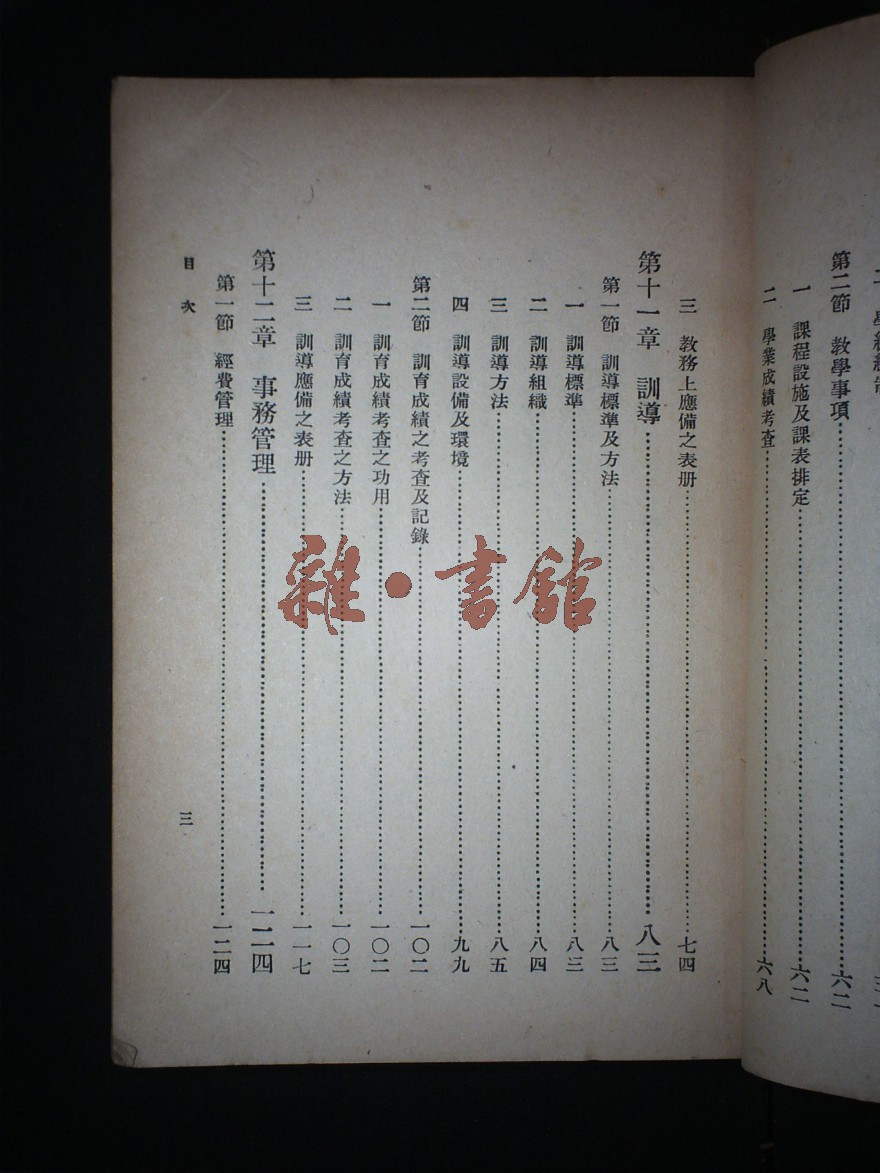 第二節　教學事項……六二
一　課程設施及課表排定……六二
二　學業成績考查……六八
三　教務上應備之表册……七四
第十一章　訓導……八三
第一節　訓導標準及方法……八三
一　訓導標準……八三
二　訓導組織……八四
三　訓導方法……八五
四　訓導設備及環境……九九
第二節　訓育成績之考查及記錄……一〇二
一　訓育成績考查之功用……一〇二
二　訓育成績考查之方法……一〇三
三　訓導應備之表册……一一七
第十二章　事務管理……一二四
第一節　經費管理……一二四
目次
三
雜·書館